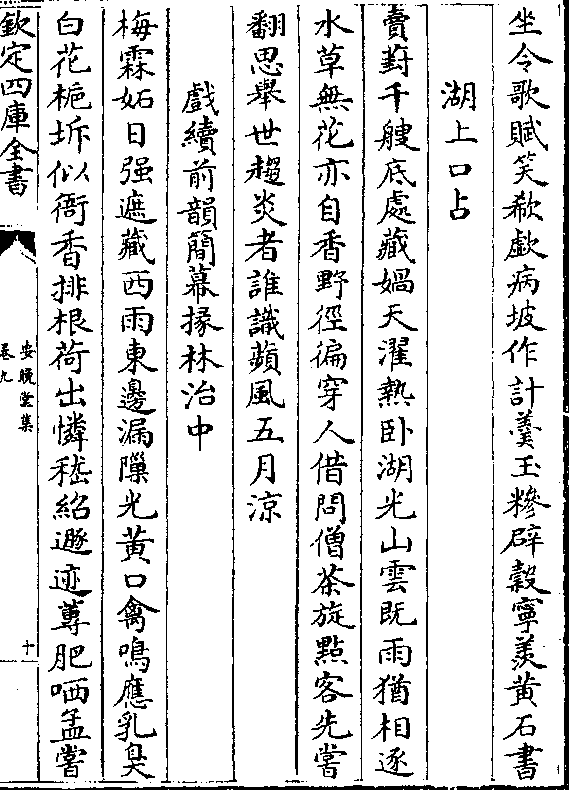 坐令歌賦笑欷歔病坡作計羹玉糝辟糓寧羡黄石書
湖上口占
賣葑千艘底處藏媧天濯熱卧湖光山雲既雨猶相逐
水草無花亦自香野徑徧穿人借問僧茶旋點客先嘗
翻思舉世趨炎者誰識蘋風五月涼
戲續前韻簡幕掾林治中
梅霖妬日强遮藏西雨東邊漏隟光黄口禽鳴應乳臭
白花梔坼似衙香排根荷出憐嵇紹遯迹蓴肥哂孟嘗
欽定四庫全書
安晚堂集
卷九
十